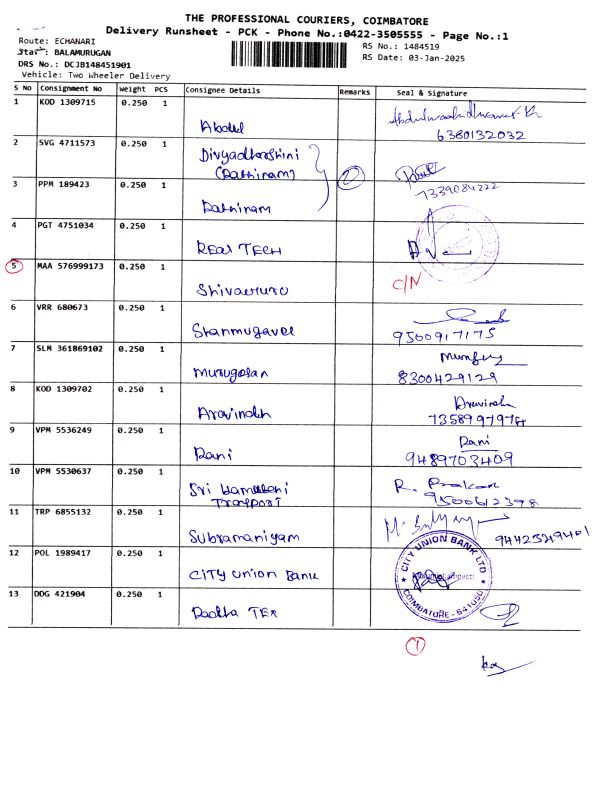 THE PROFESSIONAL COURIERS, COIMBATORE
Delivery Runsheet - PCK - Phone No.:0422-3505555 - Page No.:1
Route: ECHANARI
RS No.: 1484519
Staff: BALAMURUGAN
RS Date: 03-Jan-2025
DRS No.: DCJB148451901
Vehicle: Two Wheeler Delivery
S No Consignment No Weight PCS Consignee Details Remarks Seal & Signature
1 KOD 1309715 0.250 1
Abdul 6380132032
2 SVG 4711573 0.250 1 Divyadharshini
(Rathinam) 2
3 PPM 189423 0.250 1 7339084222
Rathinam
4 PGT 4751034 0.250 1
Real TECH
5 MAA 576999173 0.250 1 C/N
6 VRR 680673 0.250 1
Shanmugavel 9500917175
7 SLM 361869102 0.250 1
Murugesan 8300429129
8 KOD 1309702 0.250 1 Aravindh
Aravindh
9 VPM 5536249 0.250 1 Rani
Rani 9489703409
10 VPM 5530637 0.250 1 Sri R. Prakash
Transport 9500612398
11 TRP 6855132 0.250 1
Subramaniyam 9442549401
12 POL 1989417 0.250 1 CITY UNION BANK LTD
CITY Union BANK
COIMBATORE - 641050
13 DDG 421904 0.250 1
Radha TEX
1